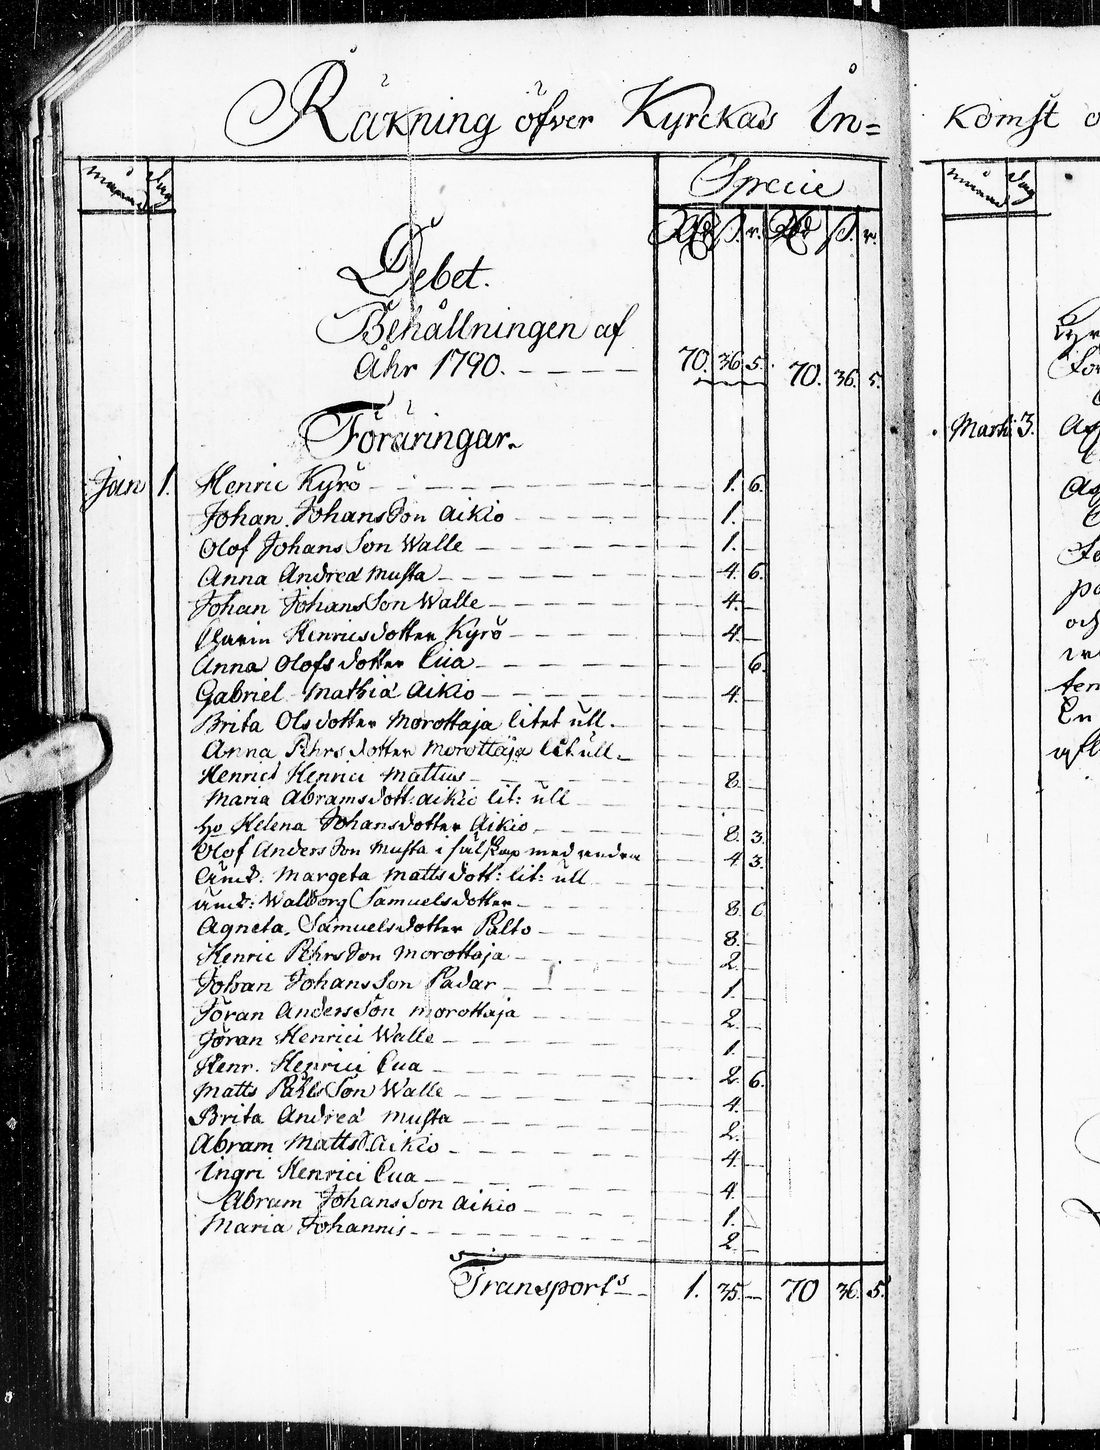 Räkning öfver Kyrckas In=
månad Dag
Specie
Rd ß. r. Rd ß. r.
Debet.
Behållningen af
Åhr 1790. 70. 36. 5. 70. 36. 5.
Föräringar.
Jan 1. Henric Kyrö 1. 6.
Johan Johansson Aikio 1.
Olof Johansson Walle 1.
Anna Andreæ Musta 4. 6.
Johan Johansson Walle 4.
Carin Henricsdotter Kyrö 4.
Anna Olofsdotter Cua 6.
Gabriel Mathiæ Aikio 4.
Brita Olsdotter Morottaja litet ull.
Anna Pehrsdotter Morottaja lit ull
Henric Henrici Mattus 8.
Maria Abramsdott: Aikio lit: ull
Helena Johansdotter Aikio 8. 3.
Olof Andersson Musta i sälskap med andra 4 3.
Margeta Mattsdott: lit: ull
Walborg Samuelsdotter 8. 6.
Agneta Samuelsdotter Palto 8.
Henric Pehrsson Morottaja 2.
Johan Johansson Padar 1.
Jöran Andersson Morottaja 2.
Jöran Henrici Walle 1.
Henr. Henrici Cua 2. 6.
Matts Påhlsson Walle 4.
Brita Andreæ Musta 2.
Abram Matts. Aikio 4.
Ingri Henrici Cua 4.
Abram Johansson Aikio 1.
Maria Johannis 2.
Transport 1. 35. 70 36. 5.
komst o
månad Dag
Marti 3.
och